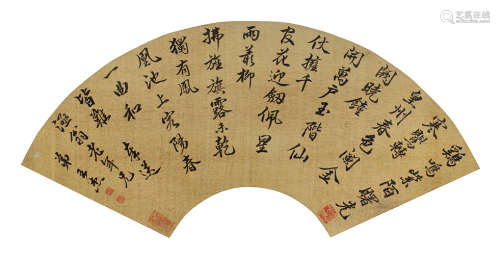 鷄鳴紫陌曙光
寒鶯囀
皇州春色闌金
闕曉鐘
開萬戶玉階仙
仗擁千
官花迎劍佩星
柳
拂旌旗露未乾
獨有鳳
凰池上客陽春
一曲和
皆難奉送
翁老年兄
弟王杰